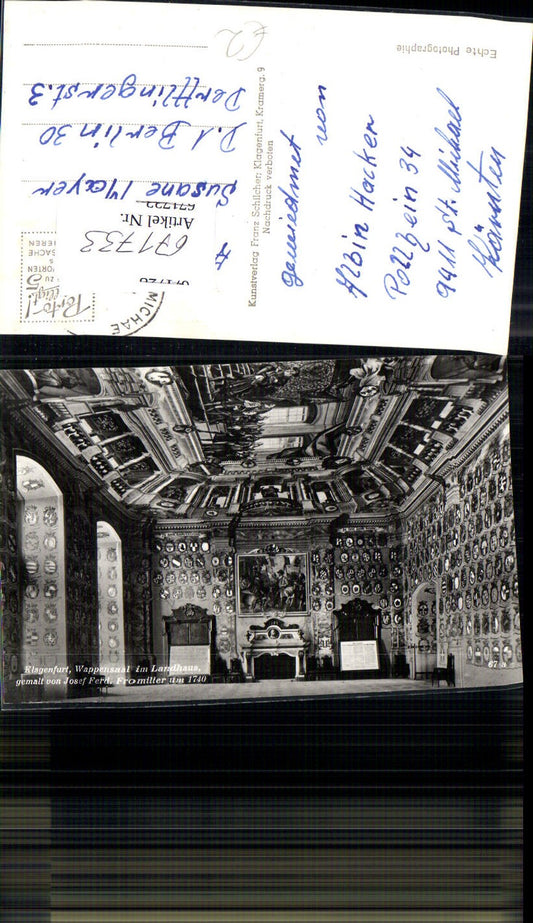 Echte Photographie
€2
gewidmet von
Albin Hacker
Pollhein 34
9411 St. Michael
Kärnten
Kunstverlag Franz Schilcher, Klagenfurt, Kramerg. 9
Nachdruck verboten
Susane Mayer
D.1 Berlin 30
Derfflingerst. 3
Artikel Nr.
671733
MICHAE
Klagenfurt, Wappensaal im Landhaus,
gemalt von Josef Ferd. Fromiller um 1740